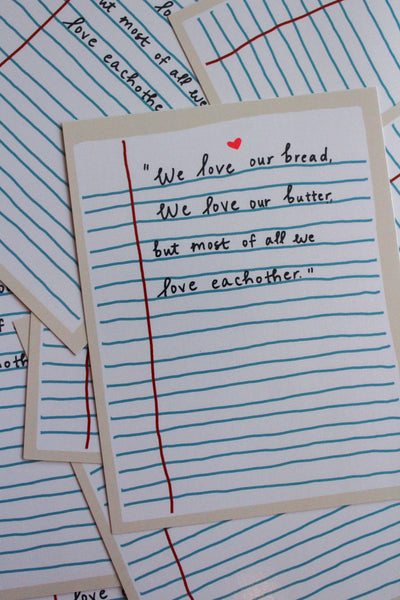 but most of all we
love eachothe
"We love our bread,
We love our butter,
but most of all we
love eachother."